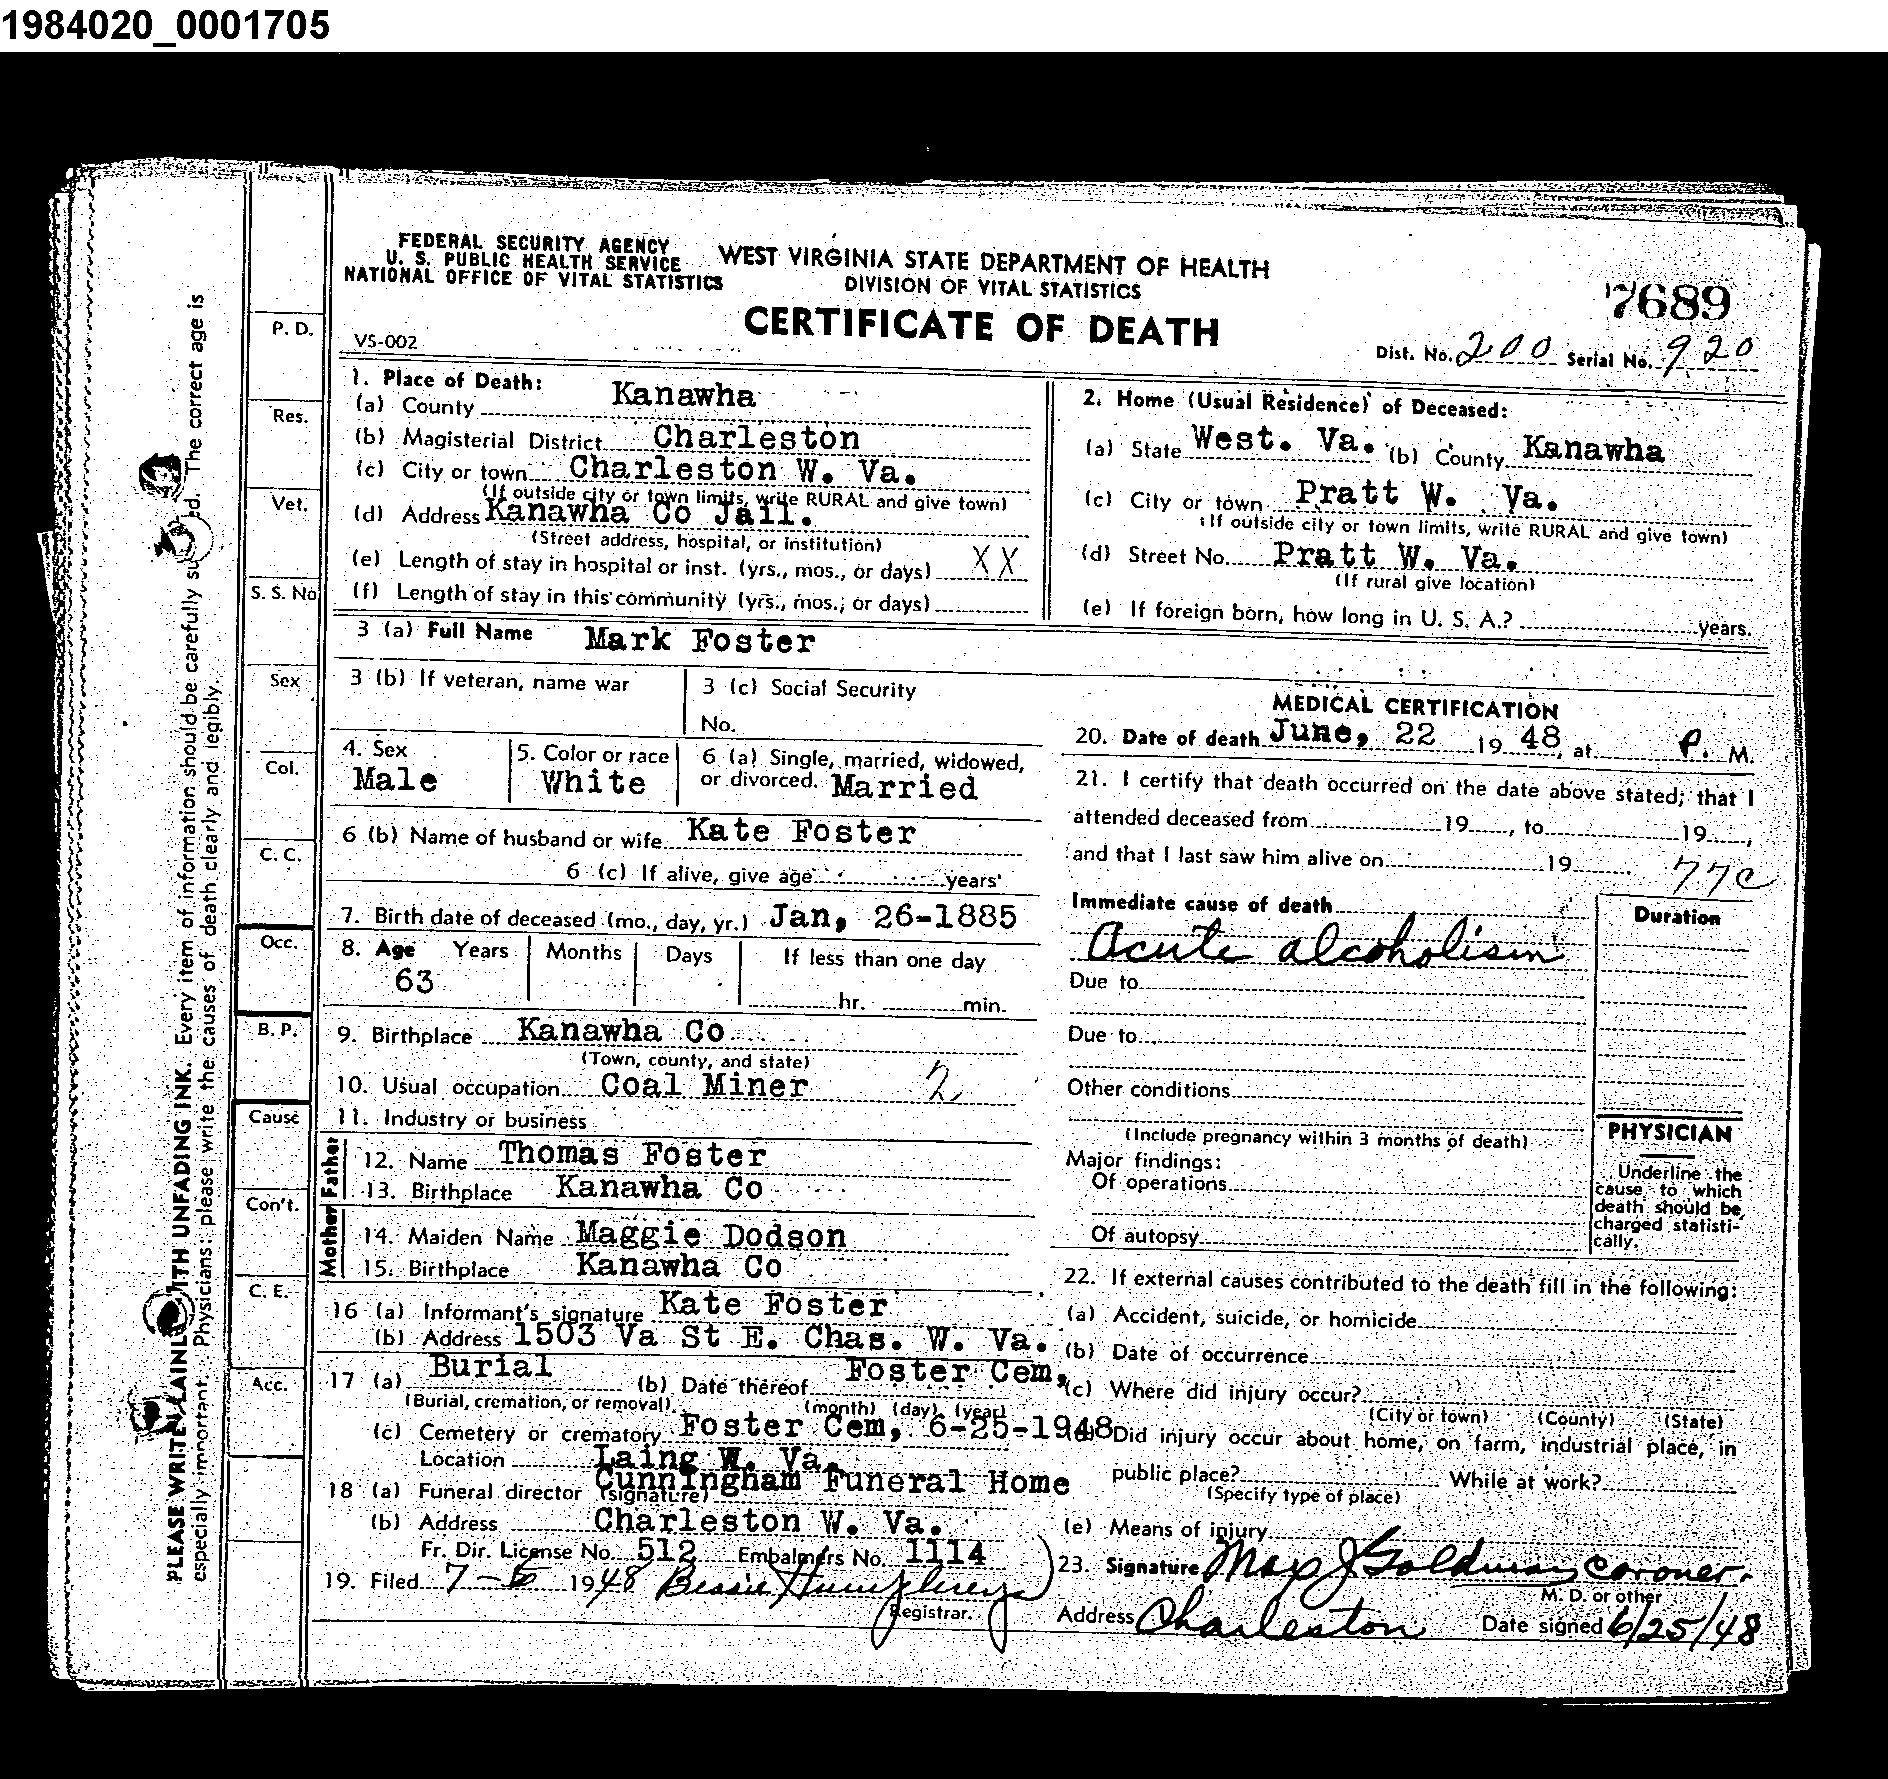 1984020_0001705
FEDERAL SECURITY AGENCY
U. S. PUBLIC HEALTH SERVICE
NATIONAL OFFICE OF VITAL STATISTICS
WEST VIRGINIA STATE DEPARTMENT OF HEALTH
DIVISION OF VITAL STATISTICS
CERTIFICATE OF DEATH
7689
VS-002
Dist. No. 200 Serial No. 920
1. Place of Death:
(a) County Kanawha
(b) Magisterial District Charleston
(c) City or town Charleston W. Va.
(If outside city or town limits, write RURAL and give town)
(d) Address Kanawha Co Jail.
(Street address, hospital, or institution)
(e) Length of stay in hospital or inst. (yrs., mos., or days) XX
(f) Length of stay in this community (yrs., mos., or days)
2. Home (Usual Residence) of Deceased:
(a) State West. Va. (b) County Kanawha
(c) City or town Pratt W. Va.
(If outside city or town limits, write RURAL and give town)
(d) Street No. Pratt W. Va.
(If rural give location)
(e) If foreign born, how long in U. S. A.? years.
3 (a) Full Name Mark Foster
3 (b) If veteran, name war
3 (c) Social Security
No.
4. Sex
Male
5. Color or race
White
6 (a) Single, married, widowed,
or divorced. Married
6 (b) Name of husband or wife Kate Foster
6 (c) If alive, give age years
7. Birth date of deceased (mo., day, yr.) Jan, 26-1885
8. Age Years Months Days If less than one day
63
hr. min.
9. Birthplace Kanawha Co
(Town, county, and state)
10. Usual occupation Coal Miner 2
11. Industry or business
Father
12. Name Thomas Foster
13. Birthplace Kanawha Co
Mother
14. Maiden Name Maggie Dodson
15. Birthplace Kanawha Co
16 (a) Informant's signature Kate Foster
(b) Address 1503 Va St E. Chas. W. Va.
17 (a) Burial (b) Date thereof Foster Cem,
(Burial, cremation, or removal) (month) (day) (year)
(c) Cemetery or crematory Foster Cem, 6-25-1948
Location Laing W. Va.
18 (a) Funeral director (signature) Cunningham Funeral Home
(b) Address Charleston W. Va.
Fr. Dir. License No. 512 Embalmers No. 1114
19. Filed 7-6 1948 Bessie Humphreys
Registrar.
MEDICAL CERTIFICATION
20. Date of death June, 22 19 48, at P. M.
21. I certify that death occurred on the date above stated; that I
attended deceased from 19, to 19,
and that I last saw him alive on 19
77c
Immediate cause of death
Acute alcoholism
Duration
Due to
Due to
Other conditions
(Include pregnancy within 3 months of death)
Major findings:
Of operations
Of autopsy
PHYSICIAN
Underline the
cause to which
death should be
charged statisti-
cally.
22. If external causes contributed to the death fill in the following:
(a) Accident, suicide, or homicide
(b) Date of occurrence
(c) Where did injury occur?
(City or town) (County) (State)
Did injury occur about home, on farm, industrial place, in
public place? While at work?
(Specify type of place)
(e) Means of injury
23. Signature Max J Goldman Coroner.
M. D. or other
Address Charleston Date signed 6/25/48
P. D.
Res.
Vet.
S. S. No
Sex
Col.
C. C.
Occ.
B. P.
Cause
Con't.
C. E.
Acc.
PLEASE WRITE PLAINLY WITH UNFADING INK. Every item of information should be carefully The correct age is
especially important. Physicians: please write the causes of death clearly and legibly.